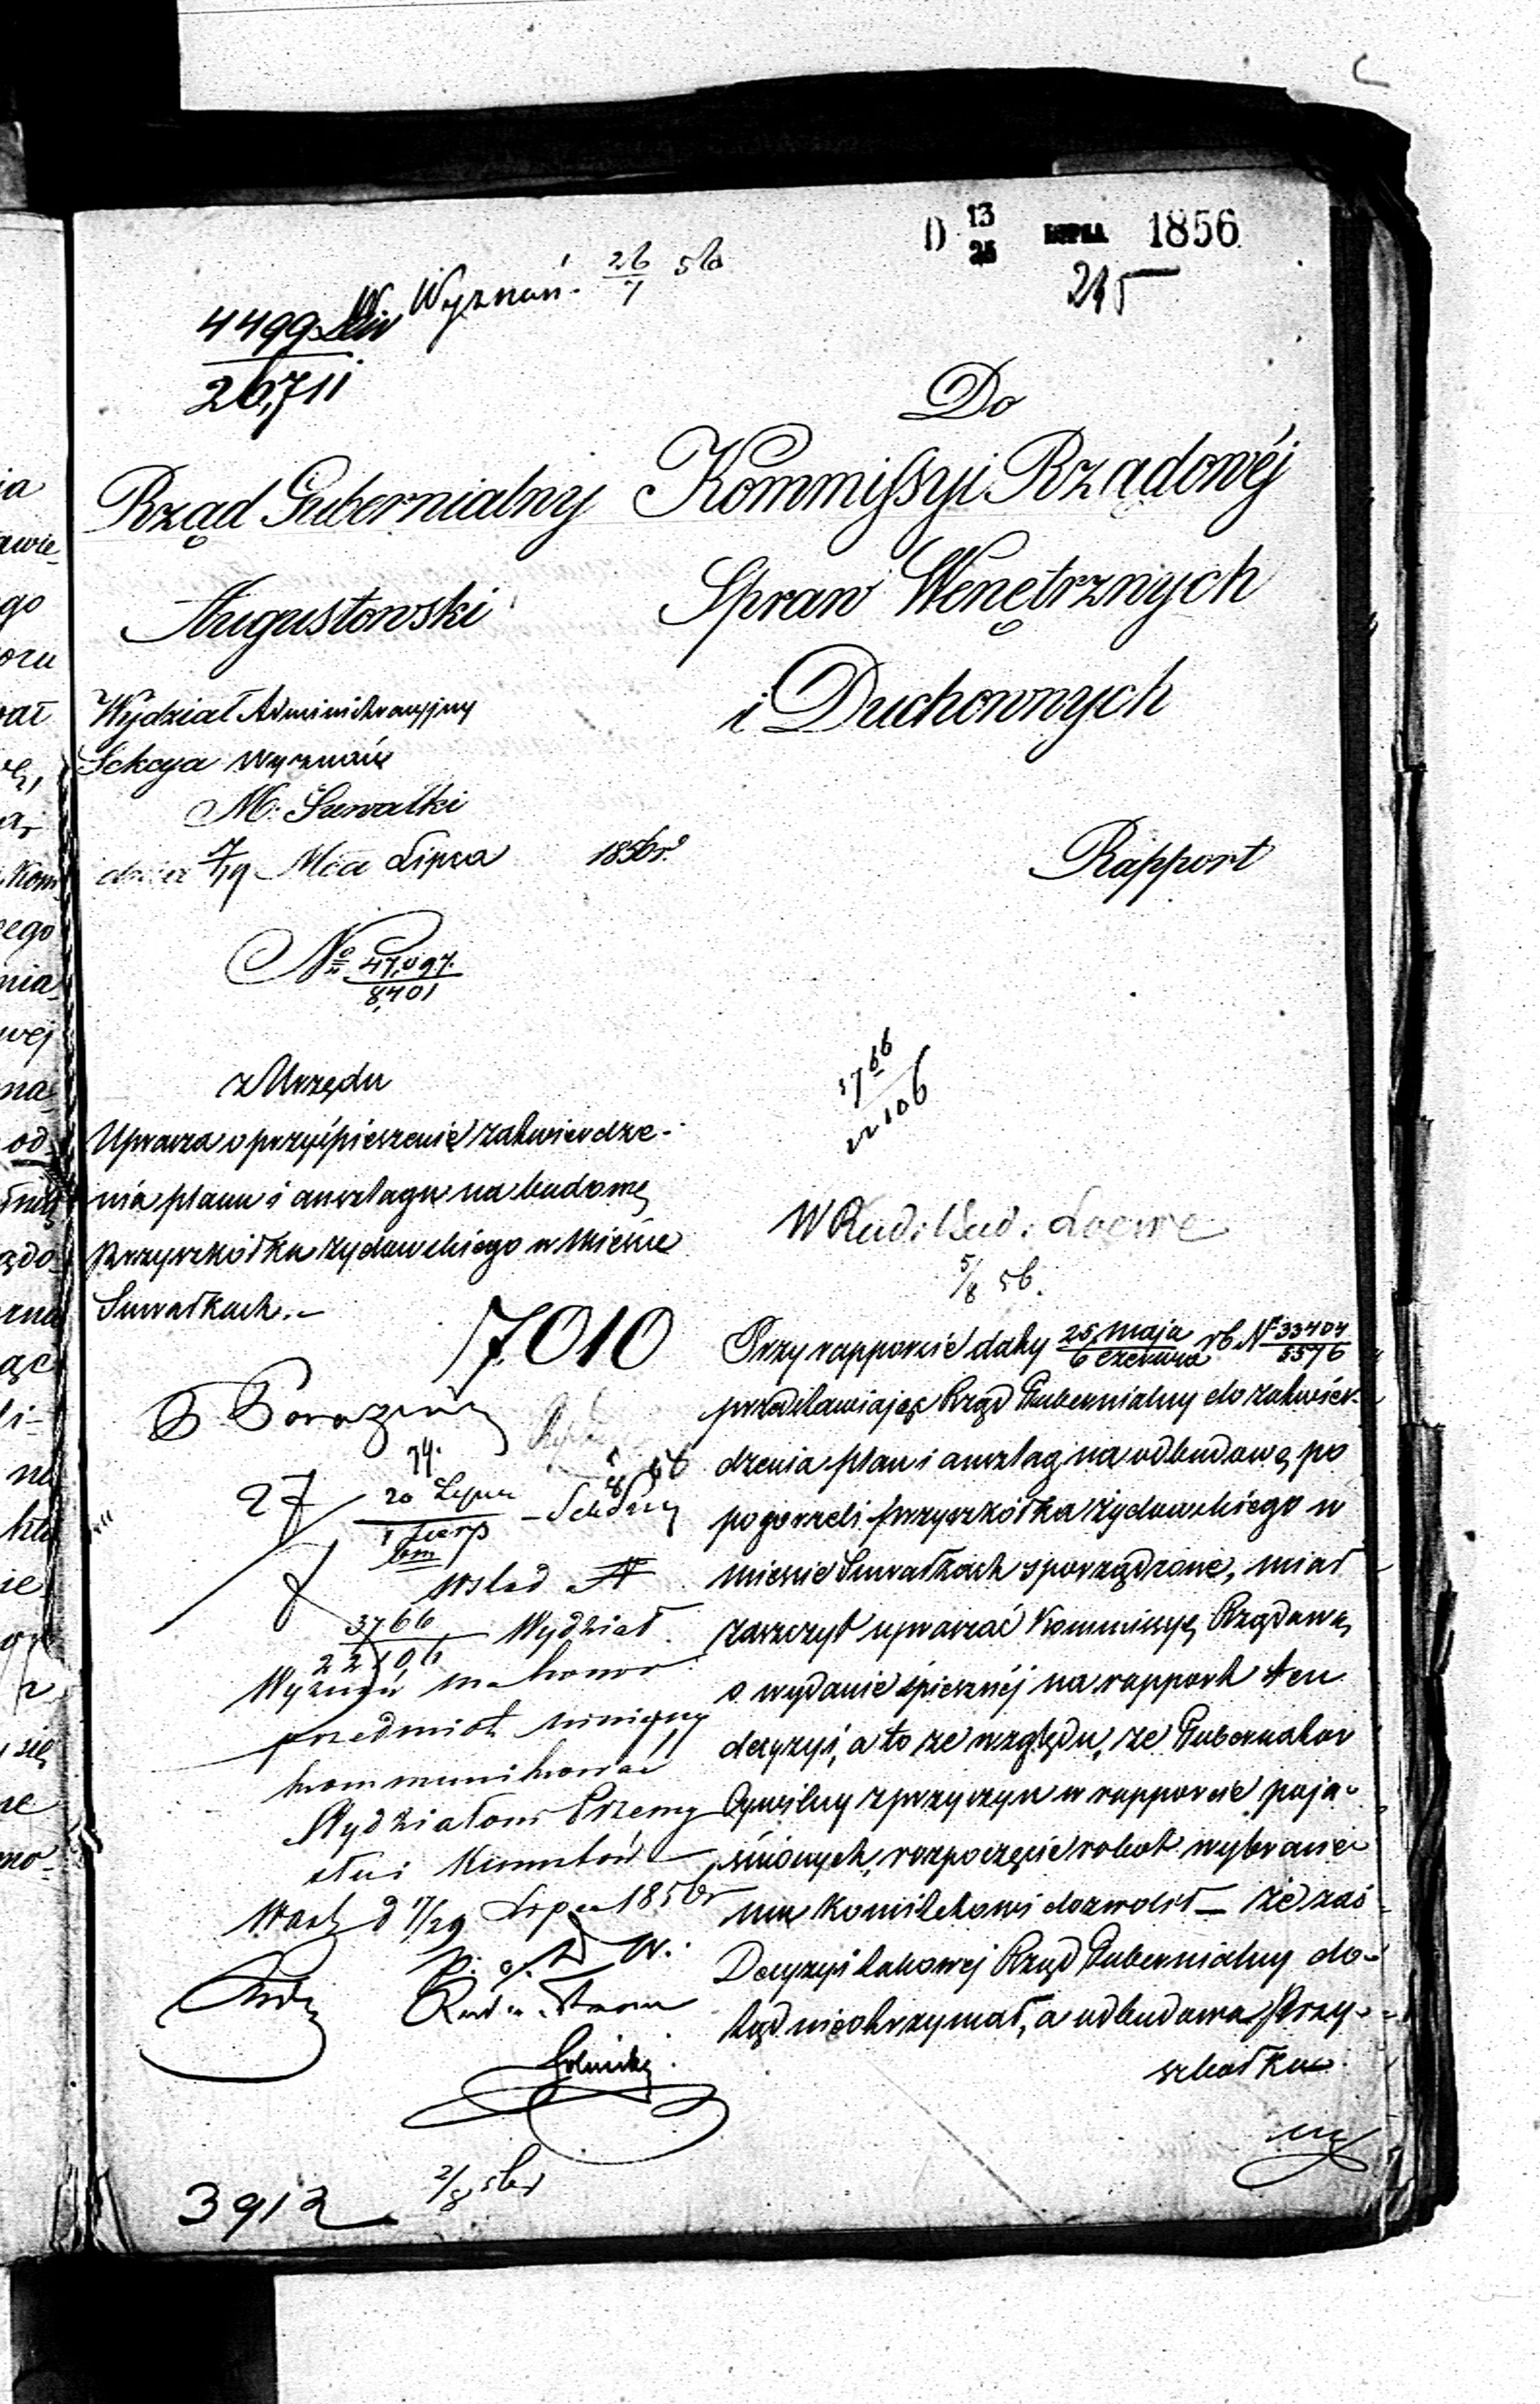 D 13/25 LIPCA 1856
215
W. Wyznań. 26/7 56
4499
26,711
Do
Kommissyi Rządowéj
Spraw Wenętrznych
i Duchownych
Rapport
Rząd Gubernialny
Augustowski
Wydział Administracyjny
Sekcya Wyznań
M. Suwałki
dnia 7/19 Mca Lipca 1856 r.
No 47,097/8,401
z Urzędu
Uprasza o przyśpieszenie zatwierdze-
nia planu i anszlagu na budowę
Przyszkółka żydowskiego w Mieście
Suwałkach.-
7010
3766
22106
W Rad: Bud: Loewe
5/8 56.
Przy rapporcie daty 25 Maja/6 Czerwca rb No 33404/5576
przedstawiając Rząd Gubernialny do zatwier-
dzenia plan i anszlag na odbudowę po
pogorzeli przyszkółka żydowskiego w
mieście Suwałkach sporządzone, miał
zaszczyt upraszać Kommissyę Rządową
o wydanie śpiesznéj na rapport ten
decyzyi, a to ze względu, że Gubernator
Cywilny z przyczyn w rapporcie poja-
śnionych, rozpoczęcie robot wybrane-
mu Komitetowi dozwolił — że zaś
Decyzyi takowej Rząd Gubernialny do-
tąd nieotrzymał, a odbudowa Przy-
szkołka
27
20 Lipca
1 Sierp
Wslad
3766
22106 Wydział
Wyznań ma honor
przedmiot niniejszy
kommunikować
Wydziałowi Przemy
słu i Kunsztów
Warsz d 17/29 Lipca 1856 r
3912
2/8 56